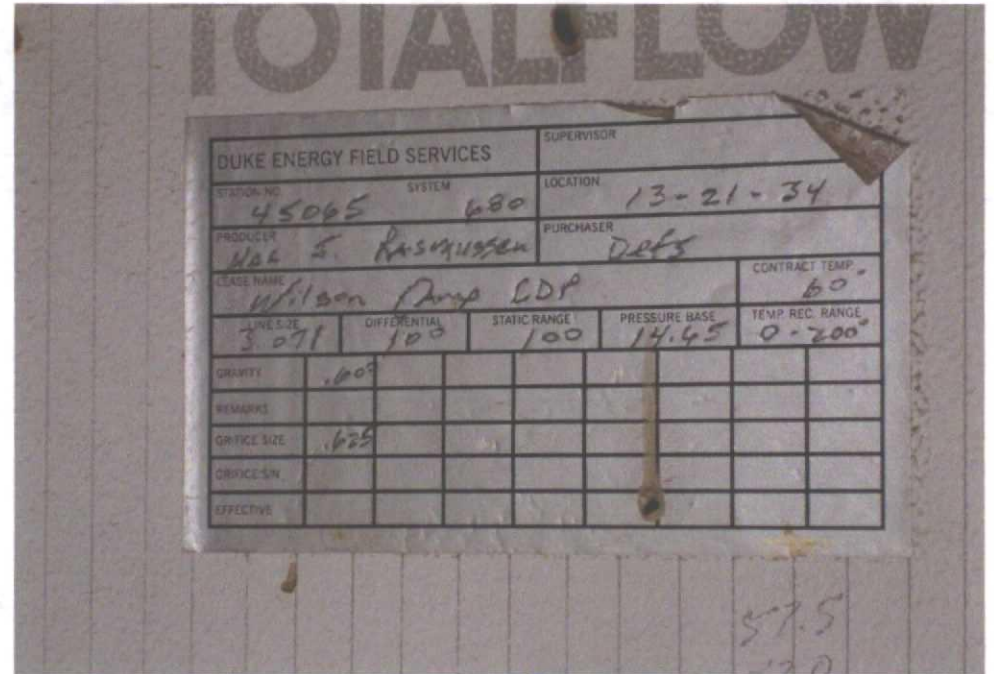 TOTALFLOW
DUKE ENERGY FIELD SERVICES
SUPERVISOR
STATION NO. 45065 SYSTEM 680
LOCATION 13-21-34
PRODUCER Hal S. Rasmussen
PURCHASER Defs
LEASE NAME Wilson Deep CDP
CONTRACT TEMP. 60°
LINE SIZE 3.071
DIFFERENTIAL 100
STATIC RANGE 100
PRESSURE BASE 14.65
TEMP. REC. RANGE 0-200°
GRAVITY .603
REMARKS
ORIFICE SIZE .625
ORIFICE S/N
EFFECTIVE
57.5